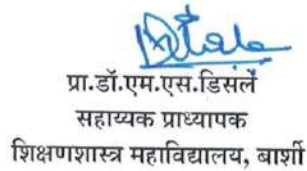 प्रा.डॉ.एम.एस.डिसले
सहाय्यक प्राध्यापक
शिक्षणशास्त्र महाविद्यालय, बार्शी